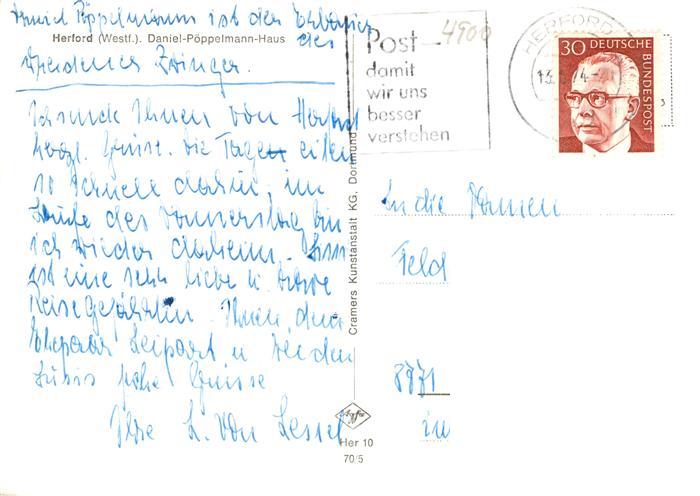 Daniel Pöppelmann ist der Erbauer
Herford (Westf.). Daniel-Pöppelmann-Haus
des
Dresdener Zwinger.
Ich sende Ihnen von Herford
herzl. Grüße. Die Tage eilen
so schnell dahin, im
Laufe des Donnerstag bin
ich wieder daheim.
ist eine sehr liebe u.
Reisegefährtin. Ihnen, dem
Ehepaar Leipart u beiden
liebe Grüsse
Ilse L. von Lessel
Cramers Kunstanstalt KG. Dortmund
Agfa
Her 10
70/5
4900
Post-
damit
wir uns
besser
verstehen
HERFORD
13. 74
30 DEUTSCHE
BUNDESPOST
3
An die Damen
Feld
8971
in